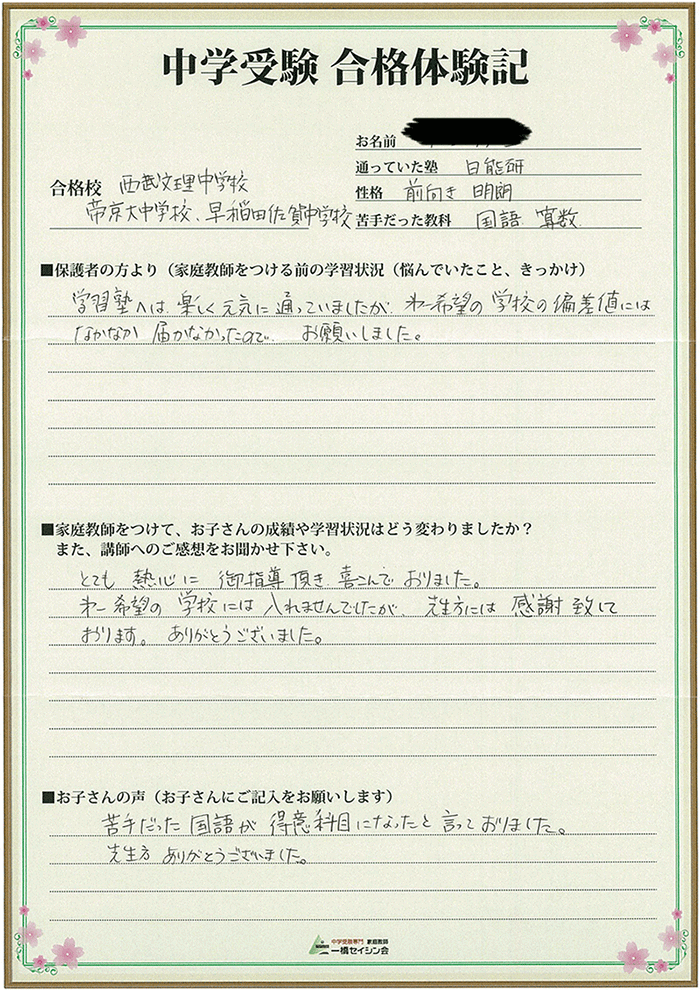 中学受験 合格体験記
お名前
通っていた塾 日能研
合格校 西武文理中学校
性格 前向き 明朗
帝京大中学校、早稲田佐賀中学校
苦手だった教科 国語 算数
■保護者の方より(家庭教師をつける前の学習状況(悩んでいたこと、きっかけ)
学習塾へは、楽しく元気に通っていましたが、㐧一希望の学校の偏差値には
なかなか届かなかったので、お願いしました。
■家庭教師をつけて、お子さんの成績や学習状況はどう変わりましたか?
また、講師へのご感想をお聞かせ下さい。
とても熱心に御指導頂き喜こんでおりました。
㐧一希望の学校には入れませんでしたが、先生方には感謝致して
おります。ありがとうございました。
■お子さんの声(お子さんにご記入をお願いします)
苦手だった国語が得意科目になったと言っておりました。
先生方ありがとうございました。
中学受験専門 家庭教師
一橋セイシン会